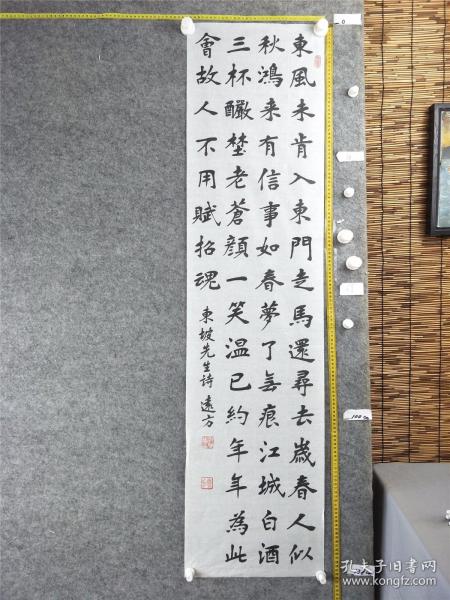 東風未肯入東門走馬還尋去歲春人似
秋鴻来有信事如春夢了無痕江城白酒
三杯釅埜老蒼顔一笑温已約年年為此
會故人不用賦招魂
東坡先生詩 遠方
0
孔夫子旧书网
www.kongfz.com